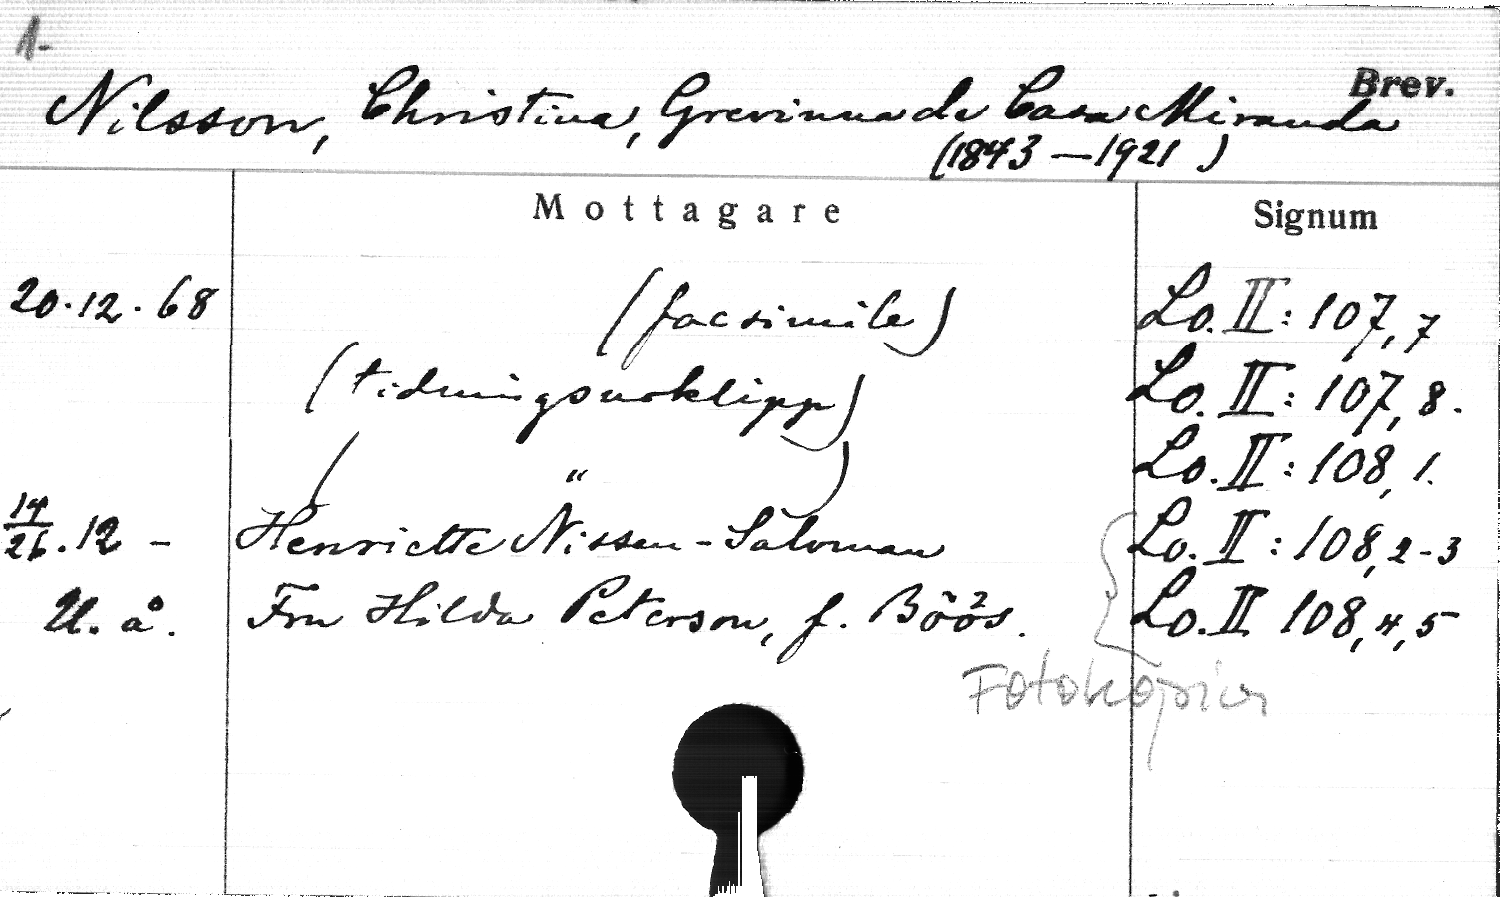 1.
Brev.
Nilsson, Christina, Grevinna de Casa Miranda
(1843 – 1921)
Mottagare Signum
20.12.68 (facsimile) Lo. II: 107, 7
(tidningsurklipp) Lo. II: 107, 8.
( " ) Lo. II: 108, 1.
14/26.12 – Henriette Nissen-Saloman Lo. II: 108, 2-3
U. å. Fru Hilda Peterson, f. Böös. Lo. II 108, 4, 5
Fotokopier